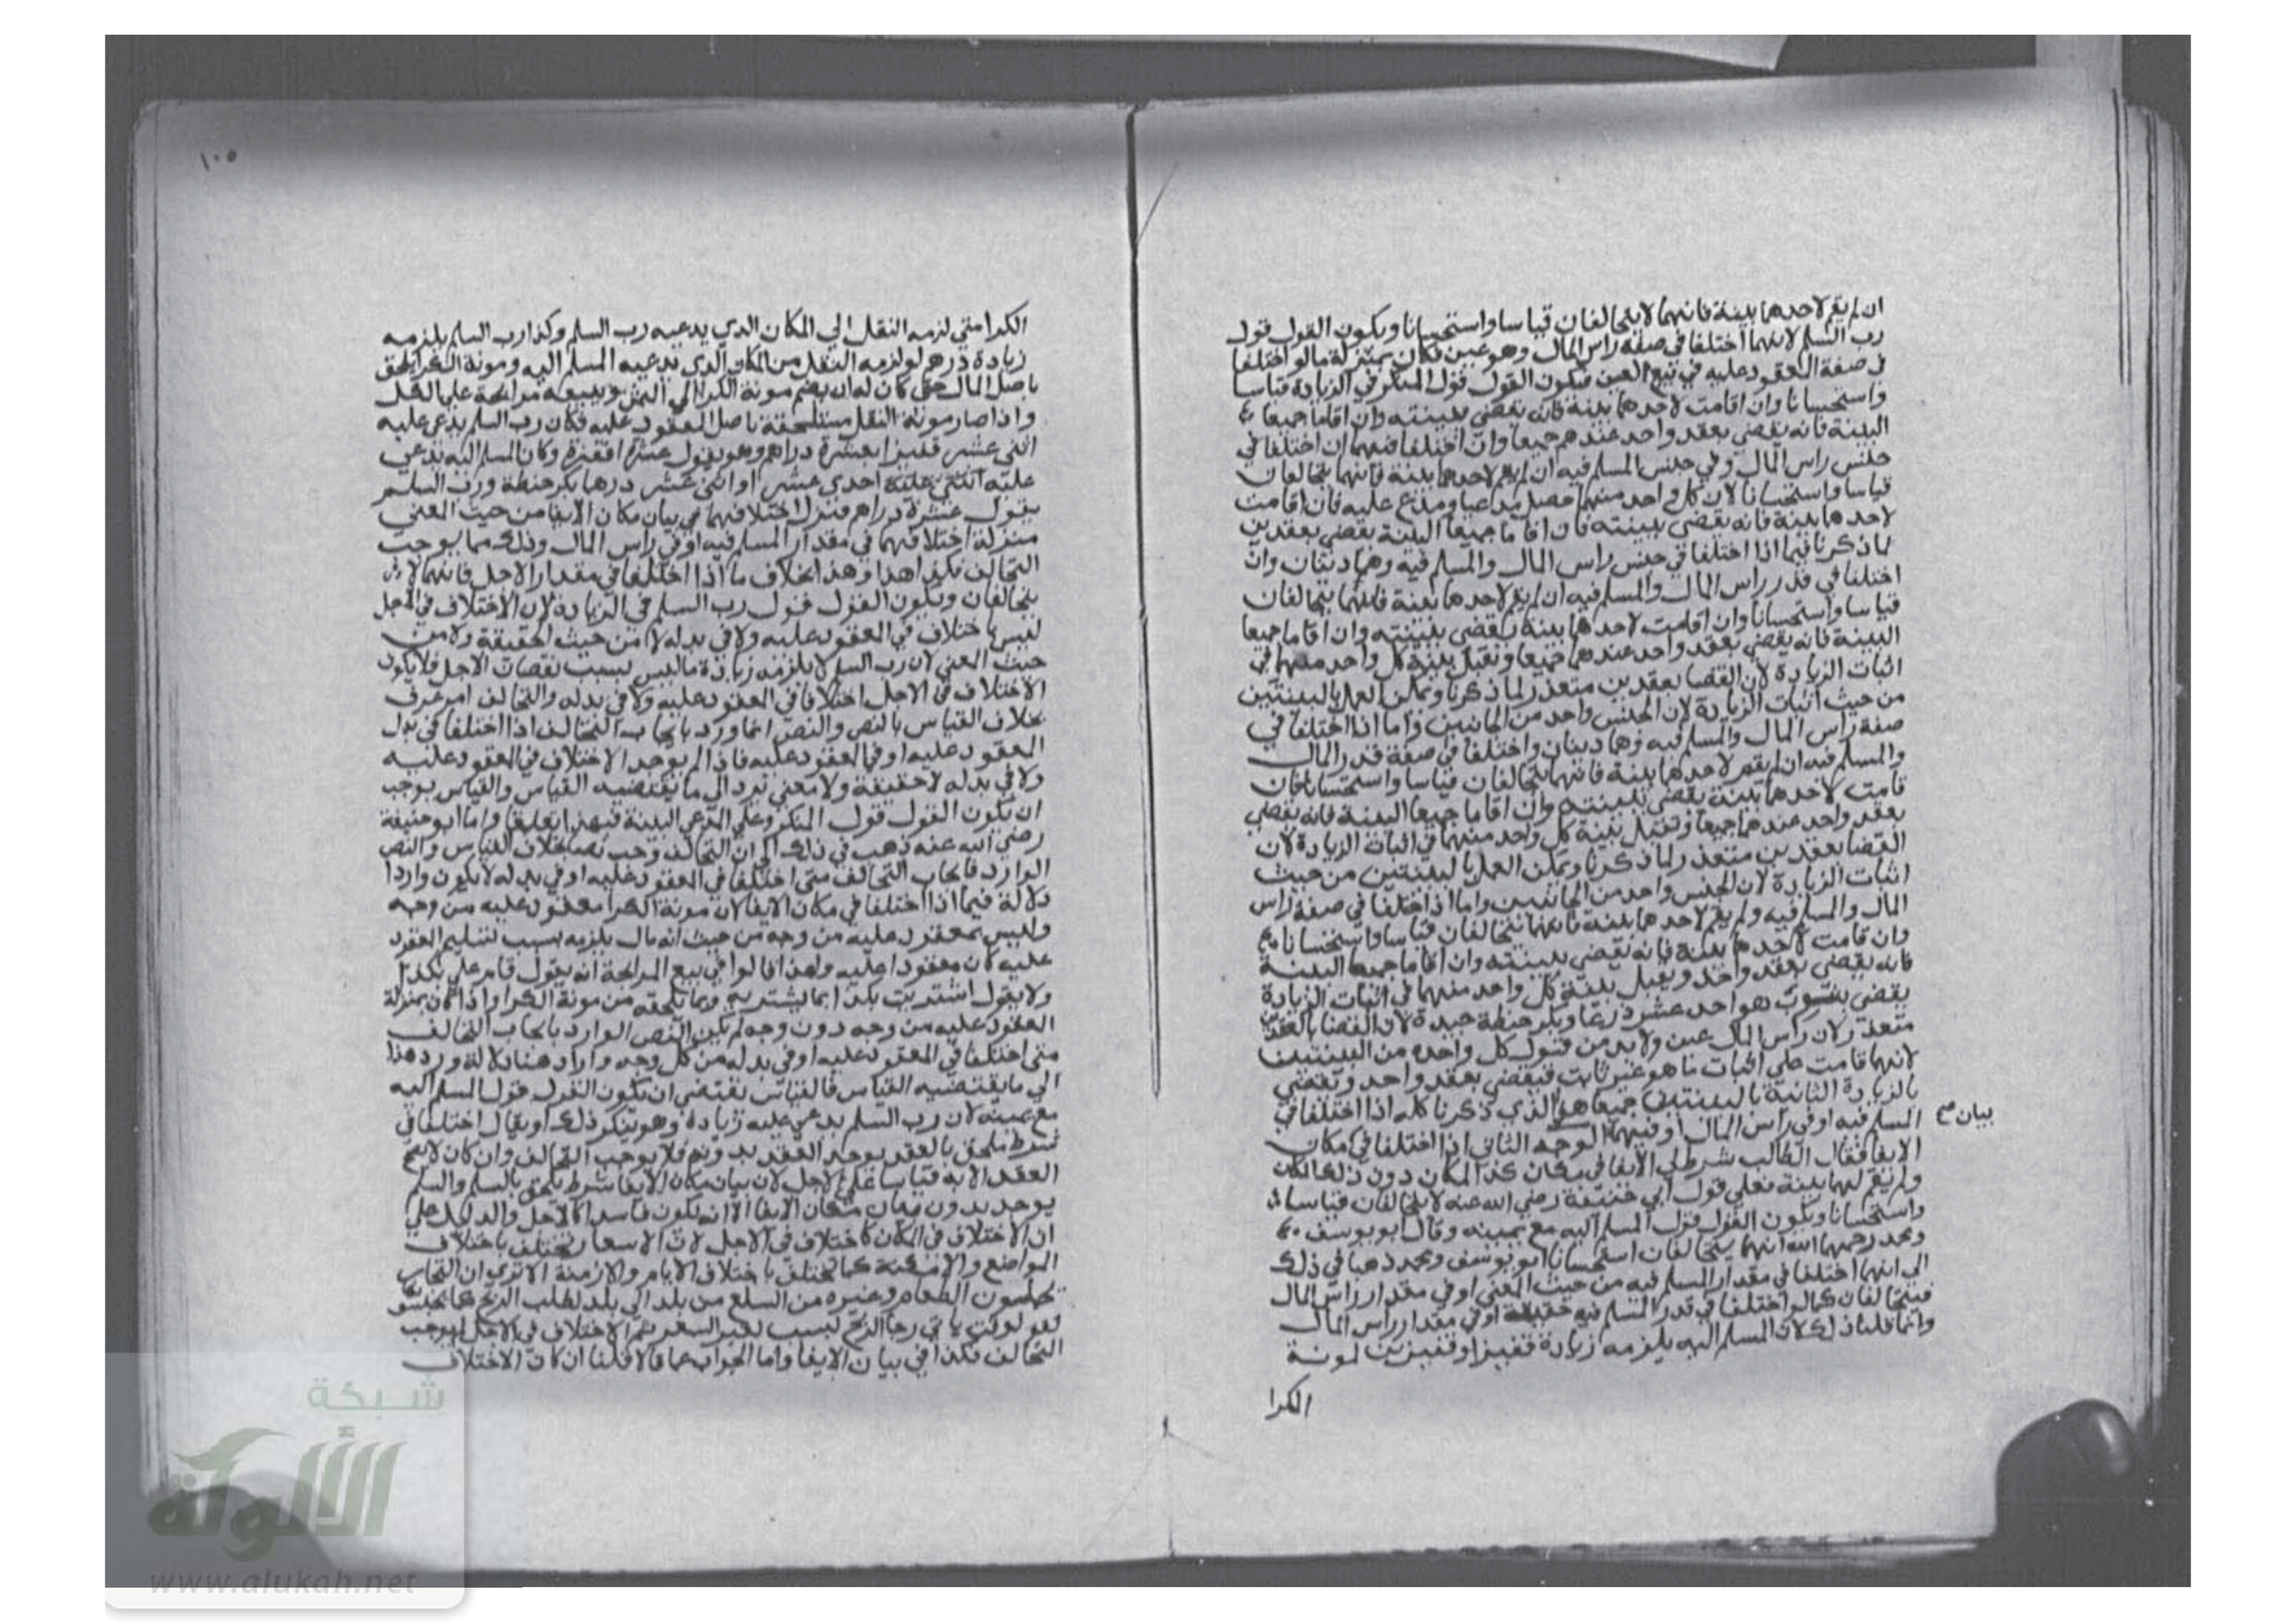 ان لم يقم لاحدهما بينة فانهما لا يتحالفان قياسا واستحسانا ويكون القول قول
رب السلم لانهما اختلفا في صفة راس المال وهو عين فكان بمنزلة ما لو اختلفا
في صفة المعقود عليه في بيع العين فيكون القول قول المنكر في الزيادة قياسا
واستحسانا وان اقامت لاحدهما بينة فانه يقضى ببينته وان اقاما جميعا
البينة فانه يقضي بعقد واحد عندهم جميعا وان اختلفا فيهما ان اختلفا في
جنس راس المال وفي جنس المسلم فيه ان لم يقم لاحدهما بينة فانهما يتحالفان
قياسا واستحسانا لان كل واحد منهما حصل مدعيا ومدع عليه فان اقامت
لاحدهما بينة فانه يقضى ببينته فان اقاما جميعا البينة يقضي بعقدين
لما ذكرنا فيما اذا اختلفا في جنس راس المال والمسلم فيه وهما دينان وان
اختلفا في قدر راس المال والمسلم فيه ان لم يقم لاحدهما بينة فانهما يتحالفان
قياسا واستحسانا وان اقامت لاحدهما بينة يقضى ببينته وان اقاما جميعا
البينة فانه يقضي بعقد واحد عندهما جميعا وتقبل بينة كل واحد منهما في
اثبات الزيادة لان القضا بعقدين متعذر لما ذكرنا ويمكن العمل بالبينتين
من حيث اثبات الزيادة لان الجنس واحد من الجانبين واما اذا اختلفا في
صفة راس المال والمسلم فيه وهما دينان واختلفا في صفة قدر المال
والمسلم فيه ان لم يقم لاحدهما بينة فانهما يتحالفان قياسا واستحسانا فان
قامت لاحدهما بينة يقضى ببينته وان اقاما جميعا البينة فانه يقضي
بعقد واحد عندهما جميعا وتقبل بينة كل واحد منهما في اثبات الزيادة لان
القضا بعقدين متعذر لما ذكرنا ويمكن العمل بالبينتين من حيث
اثبات الزيادة لان الجنس واحد من الجانبين واما اذا اختلفا في صفة راس
المال والمسلم فيه ولم يقم لاحدهما بينة فانهما يتحالفان قياسا واستحسانا
وان قامت لاحدهما بينة فانه يقضى ببينته وان اقاما جميعا البينة
فانه يقضي بعقد واحد ويقبل بينة كل واحد منهما في اثبات الزيادة
يقضى بثوب هو احد عشر ذرعا وبكر حنطة جيدة لان القضا بالعقدين
متعذر لان راس المال عين ولا بد من قبول كل واحده من البينتين
لانهما قامت على اثبات ما هو غير ثابت فيقضي بعقد واحد ويقضي
بالزيادة الثانية بالبينتين جميعا هو الذي ذكرنا كله اذا اختلفا في
المسلم فيه او في راس المال او فيهما الوجه الثاني اذا اختلفا في مكان
بيان صح
الايفا فقال الطالب شرط لي الايفا في مكان كذا المكان دون ذلك المكان
ولم يقم لهما بينة فعلي قول ابي حنيفة رضي الله عنه لا يتحالفان قياسا
واستحسانا ويكون القول قول المسلم اليه مع يمينه وقال ابو يوسف
ومحمد رحمهما الله انهما يتحالفان استحسانا ابو يوسف ومحمد ذهبا في ذلك
الى انهما اختلفا في مقدار المسلم فيه من حيث المعنى او في مقدار راس المال
فيتحالفان كما لو اختلفا في قدر المسلم فيه حقيقة او في مقدار راس المال
وانما قلنا ذلك لان المسلم اليه يلزمه زيادة قفيز او قفيزين لمونة
الكرا
١٠٥
الكرا متى لزمه النقل الي المكان الذي يدعيه رب السلم وكذا رب السلم يلزمه
زيادة درهم لو لزمه النقل من المكان الذي يدعيه المسلم اليه ومونة الكرا يلحق
باصل المال حتى كان له ان يضم مونة الكرا الي الثمن ويبيعه مرابحة علي الكل
واذا صار مونة النقل مستلحقة باصل المعقود عليه فكان رب السلم يدعي عليه
اثني عشر قفيزا بعشرة دراهم وهو يقول عشرة اقفزة وكان المسلم اليه يدعي
عليه احدي عشر او اثني عشر درهما بكر حنطة ورب السلم
يقول عشرة دراهم فنزل اختلافهما في بيان مكان الايفا من حيث المعني
منزلة اختلافهما في مقدار المسلم فيه او في راس المال وذلك مما يوجب
التحالف فكذا هذا وهذا بخلاف ما اذا اختلفا في مقدار الاجل فانهما لا
يتحالفان ويكون القول قول رب السلم في الزيادة لان الاختلاف في الاجل
ليس باختلاف في المعقود عليه ولا في بدله لا من حيث الحقيقة ولا من
حيث المعني لان رب السلم لا يلزمه زيادة مال ليس بسبب نقصان الاجل فلا يكون
الاختلاف في الاجل اختلافا في المعقود عليه ولا في بدله والتحالف امر عرف
بخلاف القياس بالنص والنص انما ورد بايجاب التحالف اذا اختلفا في بدل
المعقود عليه او في المعقود عليه فاذا لم يوجد الاختلاف في المعقود عليه
ولا في بدله لا حقيقة ولا معني نرد الي ما يقتضيه القياس والقياس يوجب
ان يكون القول قول المنكر وعلي المدعي البينة فبهذا تعلقا واما ابو حنيفة
رضي الله عنه ذهب في ذلك الي ان التحالف وجب نصا بخلاف القياس والنص
الوارد بايجاب التحالف متى اختلفا في المعقود عليه او في بدله لا يكون واردا
دلالة فيما اذا اختلفا في مكان الايفا لان مونة الكرا معقود عليه من وجه
وليس بمعقود عليه من وجه من حيث انه مال يلزمه بسبب تسليم المعقود
عليه كان معقودا عليه ولهذا قالوا في بيع المرابحة انه يقول قام علي بكذا
ولا يقول اشتريت بكذا بما يشتريه وبما يلحقه من مونة الكرا واذا كان بمنزلة
المعقود عليه من وجه دون وجه لم يكن النص الوارد بايجاب التحالف
متى اختلفا في المعقود عليه او في بدله من كل وجه واراد هنا دلالة ورد هذا
الي ما يقتضيه القياس فالقياس يقتضي ان يكون القول قول المسلم اليه
مع يمينه لان رب السلم يدعي عليه زيادة وهو ينكر ذلك او يقال اختلفا في
شرط ملحق بالعقد يوجد العقد بدونه فلا يوجب التحالف وان كان لا يصح
العقد الا به قياسا علي الاجل لان بيان مكان الايفا شرط يلحق بالسلم والسلم
يوجد بدون مكان الايفا الا انه يكون فاسدا كالاجل والدليل علي
ان الاختلاف في المكان كاختلاف في الاجل لان الاسعار تختلف باختلاف
المواضع والامكنة كما تختلف باختلاف الايام والازمنة الا تري ان التجار
الطعام وغيره من السلع من بلد الي بلد لطلب الربح كما
لوقت ياتي رجا الربح بسبب تغير السعر ثم الاختلاف في الاجل لا يوجب
التحالف فكذا في بيان الايفا واما الجواب عما قالا قلنا ان كان الاختلاف
شبكة
الألوكة
www.alukah.net